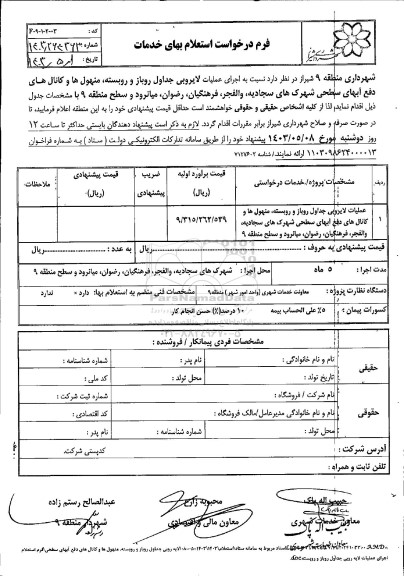 فرم درخواست استعلام بهای خدمات
کد : ۴۰۹۰۱۰۲۰۰۳
شماره
تاریخ :
شهرداری منطقه ۹ شیراز در نظر دارد نسبت به اجرای عملیات لایروبی جداول روباز و روبسته، منهول ها و کانال های
دفع آبهای سطحی شهرک های سجادیه، والفجر، فرهنگیان، رضوان، میانرود و سطح منطقه ۹ با مشخصات جدول
ذیل اقدام نماید، لذا از کلیه اشخاص حقیقی و حقوقی خواهشمند است حداقل قیمت پیشنهادی خود را به این منطقه اعلام فرمایید، تا
در صورت صرفه و صلاح شهرداری شیراز برابر مقررات اقدام گردد. لازم به ذکر است پیشنهاد دهندگان بایستی حداکثر تا ساعت ۱۲
روز دوشنبه مورخ ۱۴۰۳/۰۵/۰۸ پیشنهاد خود را از طریق سامانه تدارکات الکترونیکی دولت (ستاد) به شماره فراخوان
۱۱۰۳۰۹۸۶۳۴۰۰۰۰۱۳ ارائه نمایند.
ردیف
مشخصات پروژه/خدمات درخواستی
قیمت برآورد اولیه (ریال)
ضریب پیشنهادی
قیمت پیشنهادی (ریال)
ملاحظات
۱
عملیات لایروبی جداول روباز و روبسته، منهول ها و
کانال های دفع آبهای سطحی شهرک های سجادیه،
والفجر، فرهنگیان، رضوان، میانرود و سطح منطقه ۹
۹/۳۱۵/۲۶۲/۵۳۹
قیمت پیشنهادی به حروف : ریال به عدد : ریال
مدت اجرا : ۵ ماه محل اجرا : شهرک های سجادیه، والفجر، فرهنگیان، رضوان، میانرود و سطح منطقه ۹
دستگاه نظارت پروژه : معاونت خدمات شهری (واحد امور شهر) منطقه۹ مشخصات فنی منضم به استعلام بها: دارد ندارد
کسورات پیمان : ۵٪ علی الحساب بیمه ۱۰ درصد(٪) حسن انجام کار
مشخصات فردی پیمانکار / فروشنده :
حقیقی
نام و نام خانوادگی : نام پدر : شماره شناسنامه :
تاریخ تولد : محل تولد : کد ملی :
حقوقی
نام شرکت / فروشگاه : شماره ثبت شرکت :
نام و نام خانوادگی مدیرعامل/مالک فروشگاه : کد اقتصادی :
محل تولد : شماره شناسنامه : نام پدر :
آدرس شرکت : کدپستی شرکت:
تلفن ثابت و همراه :
حبیب اله پاک
معاون خدمات شهری
محبوبه زارع
معاون مالی و اقتصادی
عبدالصالح رستم زاده
شهردار منطقه ۹
ParsNamadData